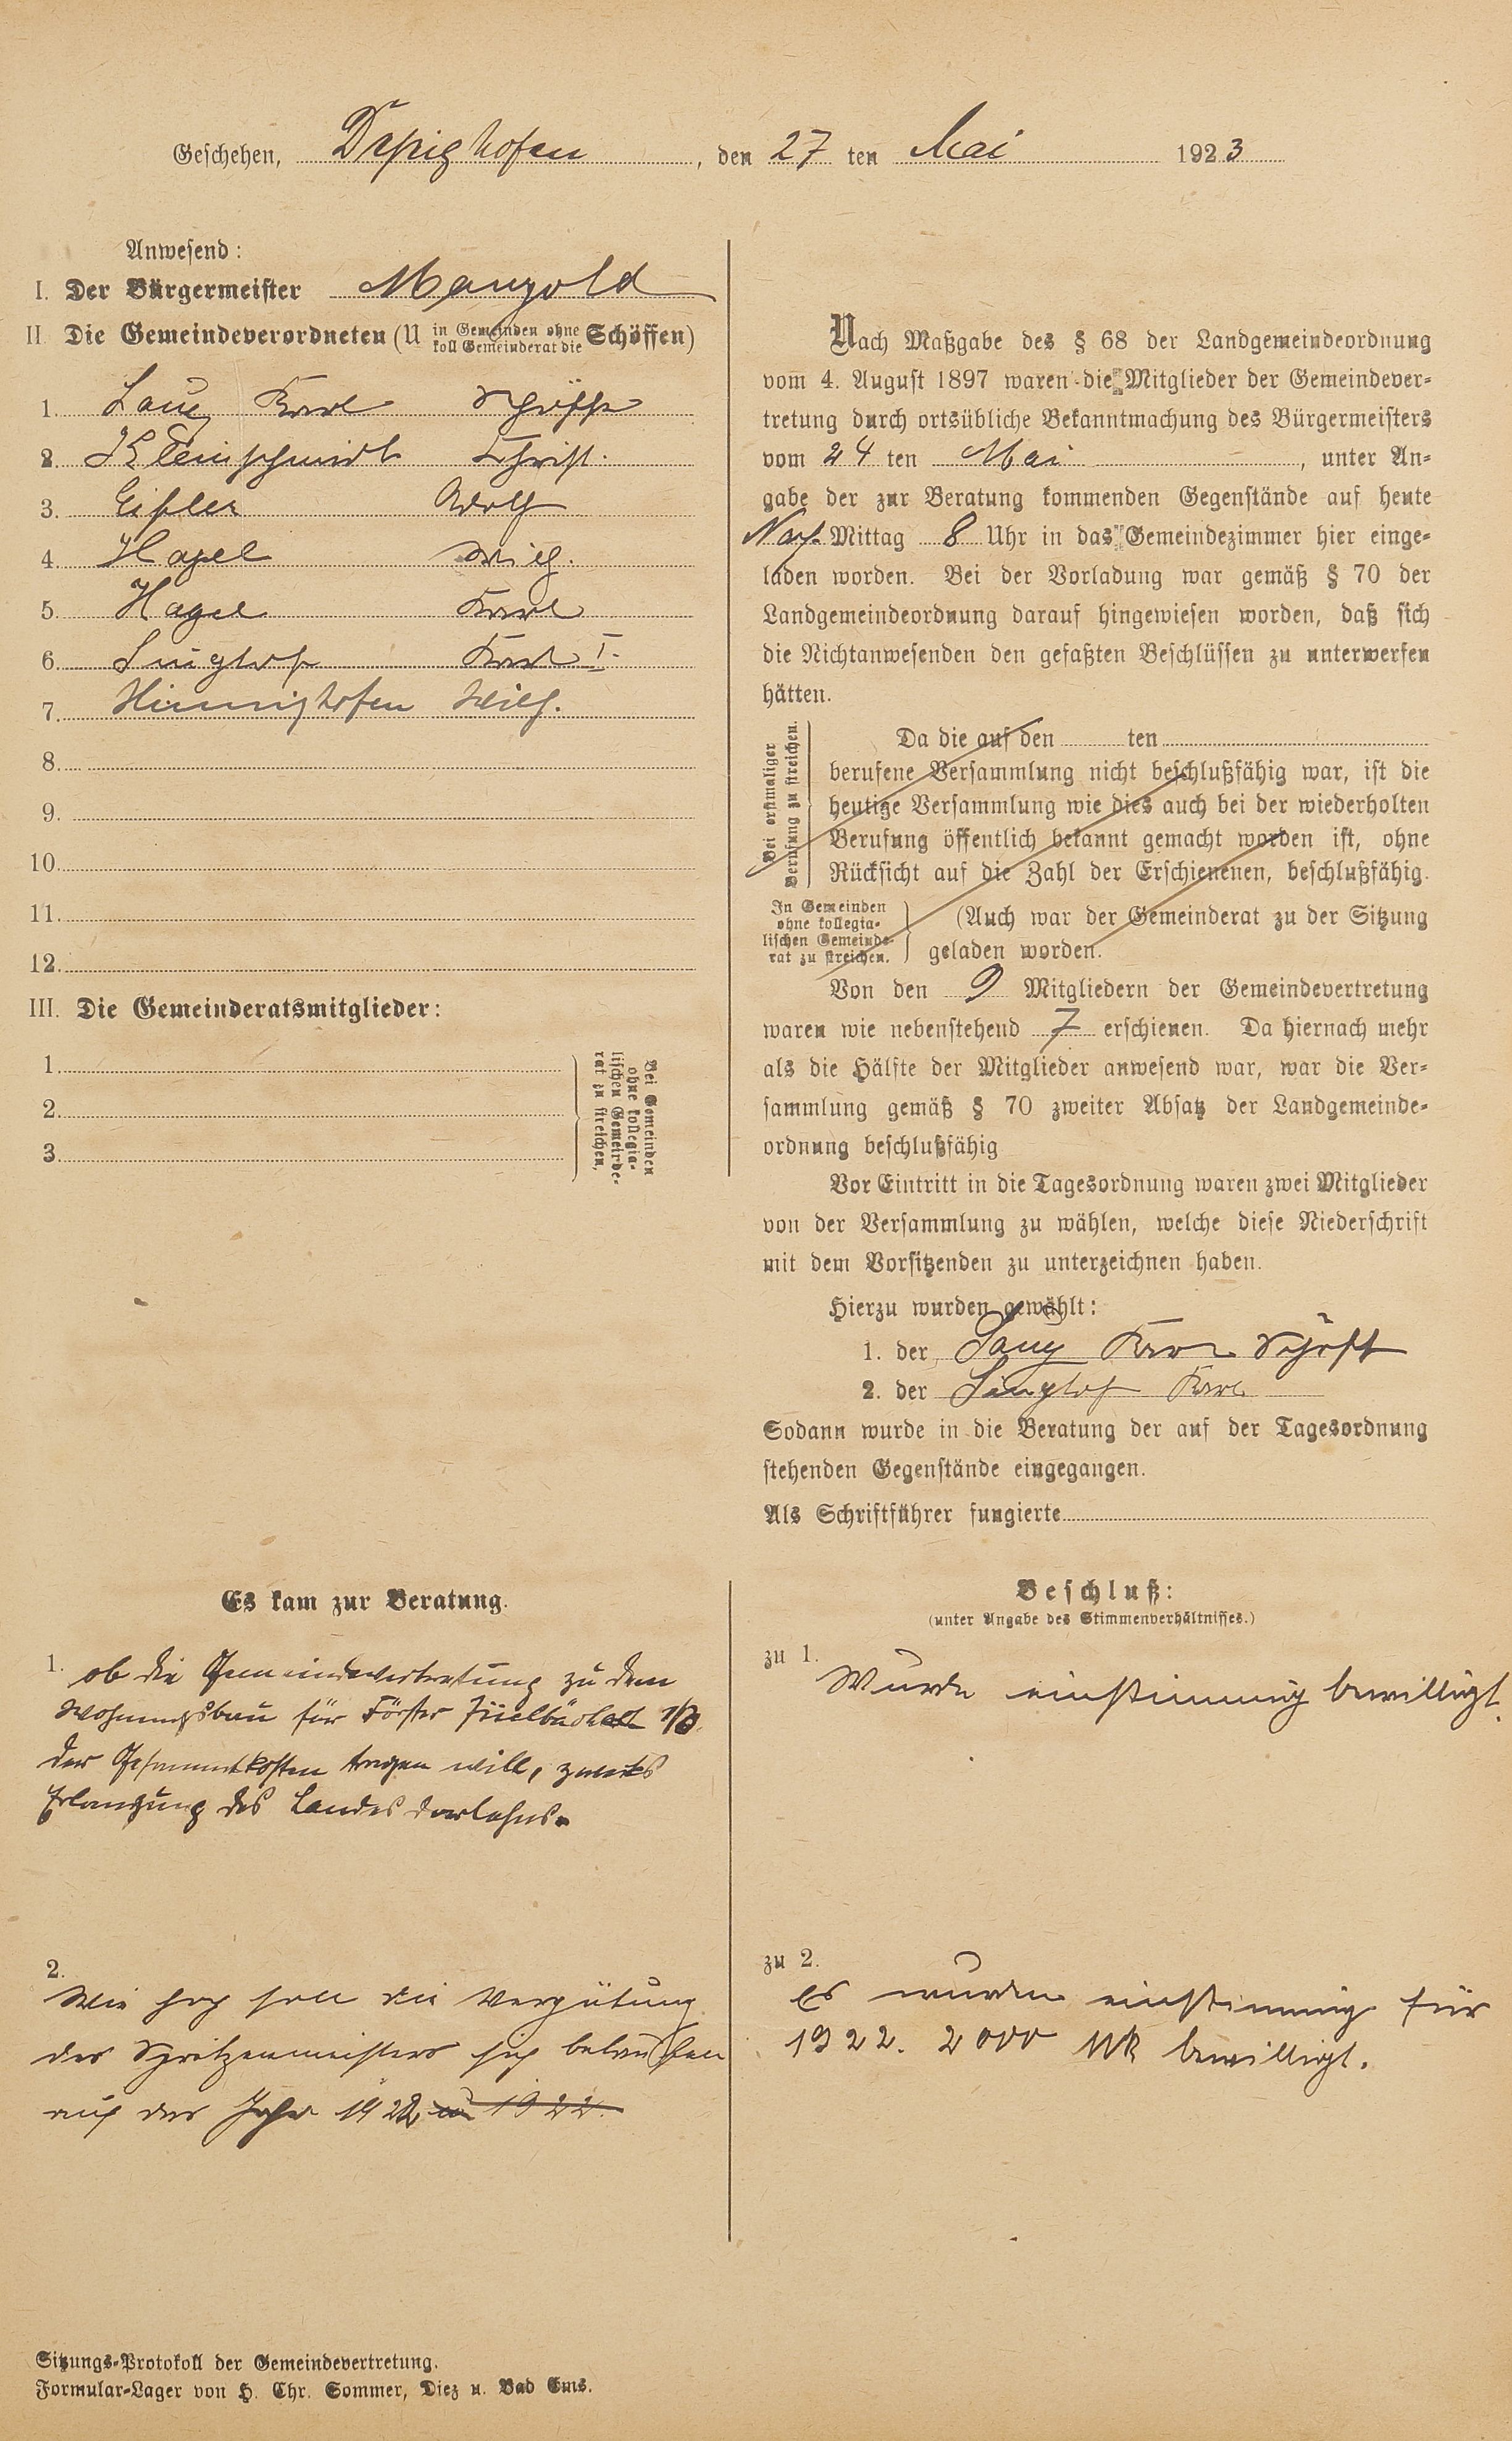 Geschehen, Dessighofen, den 27 ten Mai 1923
Anwesend:
I. Der Bürgermeister Mangold
II. Die Gemeindeverordneten (U in Gemeinden ohne koll Gemeinderat die Schöffen)
1. Lang Karl Schöffe
2. Kleinschmidt Christ.
3. Eisler Adolf
4. Hagel Wilh.
5. Hagel Karl
6. Singhof Karl I.
7. Hinnighofen Wilh.
8.
9.
10.
11.
12.
III. Die Gemeinderatsmitglieder:
1.
2.
3.
Bei Gemeinden
ohne kollegia-
lischen Gemeinde-
rat zu streichen.
Nach Maßgabe des § 68 der Landgemeindeordnung
vom 4. August 1897 waren die Mitglieder der Gemeindever-
tretung durch ortsübliche Bekanntmachung des Bürgermeisters
vom 24 ten Mai, unter An-
gabe der zur Beratung kommenden Gegenstände auf heute
Nach Mittag 8 Uhr in das Gemeindezimmer hier einge-
laden worden. Bei der Vorladung war gemäß § 70 der
Landgemeindeordnung darauf hingewiesen worden, daß sich
die Nichtanwesenden den gefaßten Beschlüssen zu unterwerfen
hätten.
Bei erstmaliger
Berufung zu streichen.
Da die auf den ten
berufene Versammlung nicht beschlußfähig war, ist die
heutige Versammlung wie dies auch bei der wiederholten
Berufung öffentlich bekannt gemacht worden ist, ohne
Rücksicht auf die Zahl der Erschienenen, beschlußfähig.
In Gemeinden
ohne kollegia-
lischen Gemeinde-
rat zu streichen.
(Auch war der Gemeinderat zu der Sitzung
geladen worden.
Von den 9 Mitgliedern der Gemeindevertretung
waren wie nebenstehend 7 erschienen. Da hiernach mehr
als die Hälfte der Mitglieder anwesend war, war die Ver-
sammlung gemäß § 70 zweiter Absatz der Landgemeinde-
ordnung beschlußfähig
Vor Eintritt in die Tagesordnung waren zwei Mitglieder
von der Versammlung zu wählen, welche diese Niederschrift
mit dem Vorsitzenden zu unterzeichnen haben.
Hierzu wurden gewählt:
1. der Lang Karl Schöff
2. der Singhof Karl
Sodann wurde in die Beratung der auf der Tagesordnung
stehenden Gegenstände eingegangen.
Als Schriftführer fungierte
Es kam zur Beratung.
1. ob die Gemeindevertretung zu dem
Wohnungsbau für Förster 1/3
der Gesammtkosten tragen will, zwecks
Erlangung des Landesdarlehns.
2.
Wie hoch soll die Vergütung
des Spritzenmeisters sich belaufen
auf das Jahr 1922 u 1922.
Beschluß:
(unter Angabe des Stimmenverhältnisses.)
zu 1.
Wurde einstimmig bewilligt.
zu 2.
Es wurden einstimmig für
1922. 2000 Mk bewilligt.
Sitzungs-Protokoll der Gemeindevertretung.
Formular-Lager von H. Chr. Sommer, Diez u. Bad Ems.